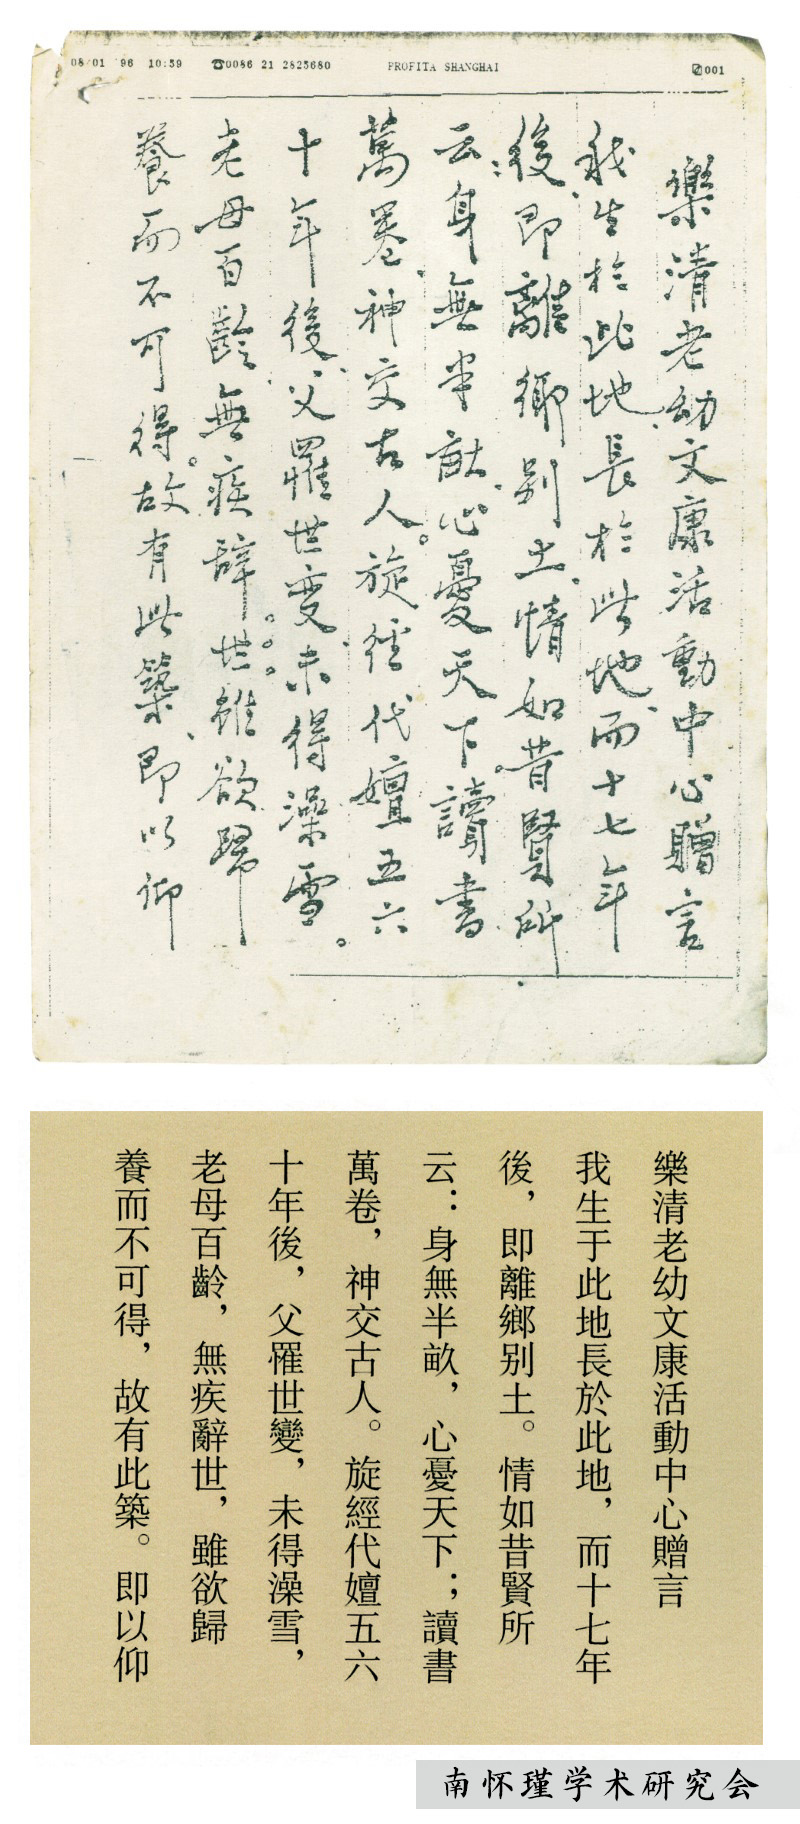 08/01 '96 10:59 ☎0086 21 2823680 PROFITA SHANGHAI 001
樂清老幼文康活動中心贈言
我生於此地、長於此地、而十七年
後、即離鄉别土、情如昔賢所
云：身無半畝、心憂天下。讀書
萬卷、神交古人。旋經代嬗五六
十年後、父罹世變、未得澡雪。
老母百齡、無疾辞世、雖欲歸
養而不可得。故有此築、即以仰
樂清老幼文康活動中心贈言
我生于此地長於此地，而十七年
後，即離鄉别土。情如昔賢所
云：身無半畝，心憂天下；讀書
萬卷，神交古人。旋經代嬗五六
十年後，父罹世變，未得澡雪，
老母百齡，無疾辭世，雖欲歸
養而不可得，故有此築。即以仰
南怀瑾学术研究会